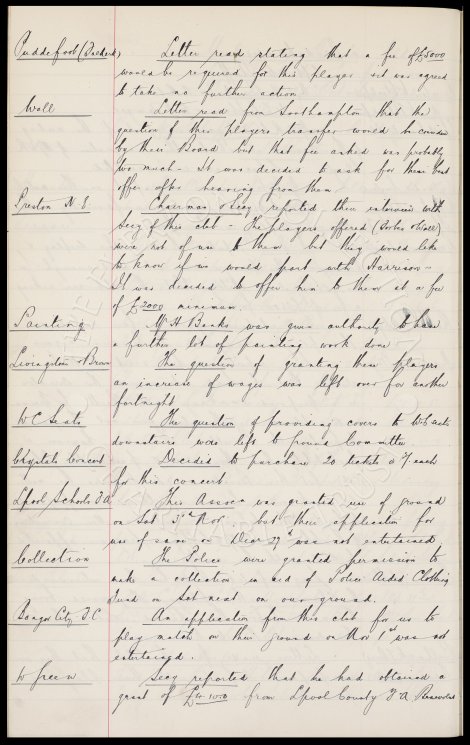 Puddefoot (Blackb'n) Letter read stating that a fee of £5000
would be required for this player & it was agreed
to take no further action
Wall Letter read from Southampton that the
question of this players transfer would be consider
by their Board but that fee asked was probably
too much - It was decided to ask for their best
offer after hearing from them
Preston N.E. Chairman & Secy reported their interview with
Secy of this club - The players offered ( & Wall)
were not of use to them but they would like
to know if we would part with Harrison -
It was decided to offer him to them at a fee
of £2000 minimum.
Painting Mr H Banks was given authority to have
a further lot of painting work done
Livingstone Brown The question of granting these players
an increase of wages was left over for another
fortnight
W C Seats The question of providing covers to W.C. seats
downstairs were left to Ground Committee
Crystals Concert Decided to purchase 20 tickets @ 1/- each
for this concert.
Lpool Schools F.A. This Assocn was granted use of ground
on Sat 3rd Nov. but their application for
use of same on Decr 29th was not entertained
Collection The Police were granted permission to
make a collection in aid of Police Aided Clothing
Fund on Sat next on our ground.
Bangor City F.C. An application from this club for us to
play match on their ground on Nov 1st was not
entertained.
W Green Secy reported that he had obtained a
grant of £4-10-0 from Lpool County F.A. Benevolent